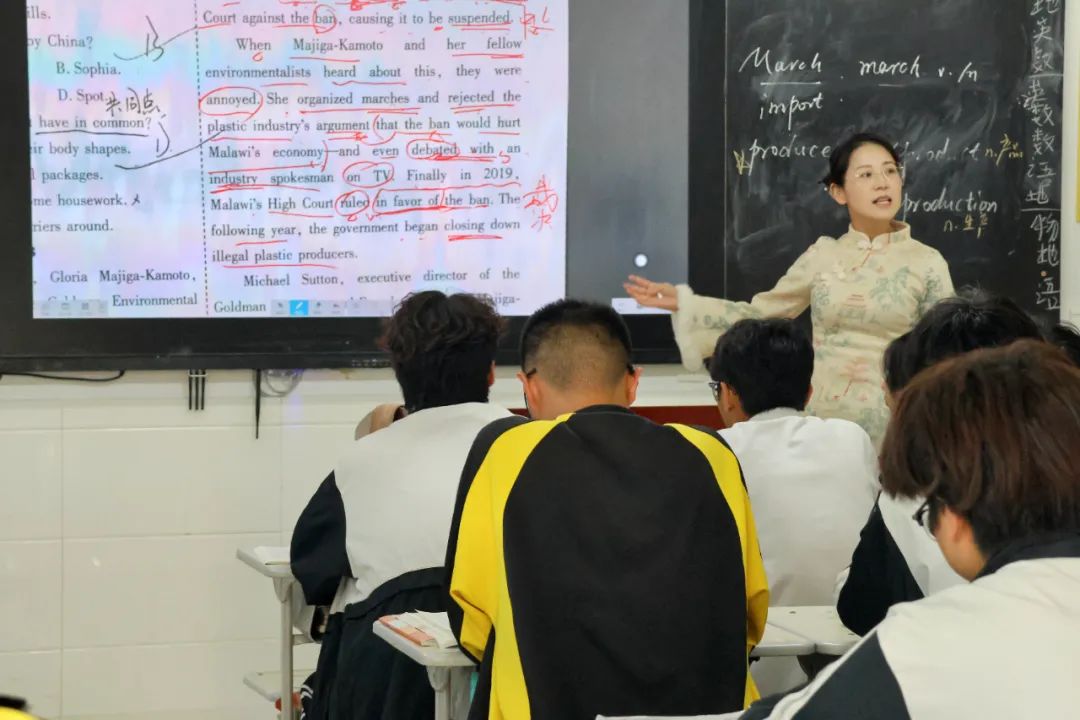 ills.
by China?
B. Sophia.
D. Spot.
共同点
have in common?
D
eir body shapes.
packages.
me housework.
riers around.
Gloria Majiga-Kamoto,
Environmental
B
Court against the ban, causing it to be suspended.
When Majiga-Kamoto and her fellow
environmentalists heard about this, they were
annoyed. She organized marches and rejected the
plastic industry's argument that the ban would hurt
Malawi's economy—and even debated with an
industry spokesman on TV. Finally in 2019,
Malawi's High Court ruled in favor of the ban. The
following year, the government began closing down
illegal plastic producers.
Michael Sutton, executive director of the
Goldman
裁决
March march v. n
import
produce product n.产品
production
n.生产